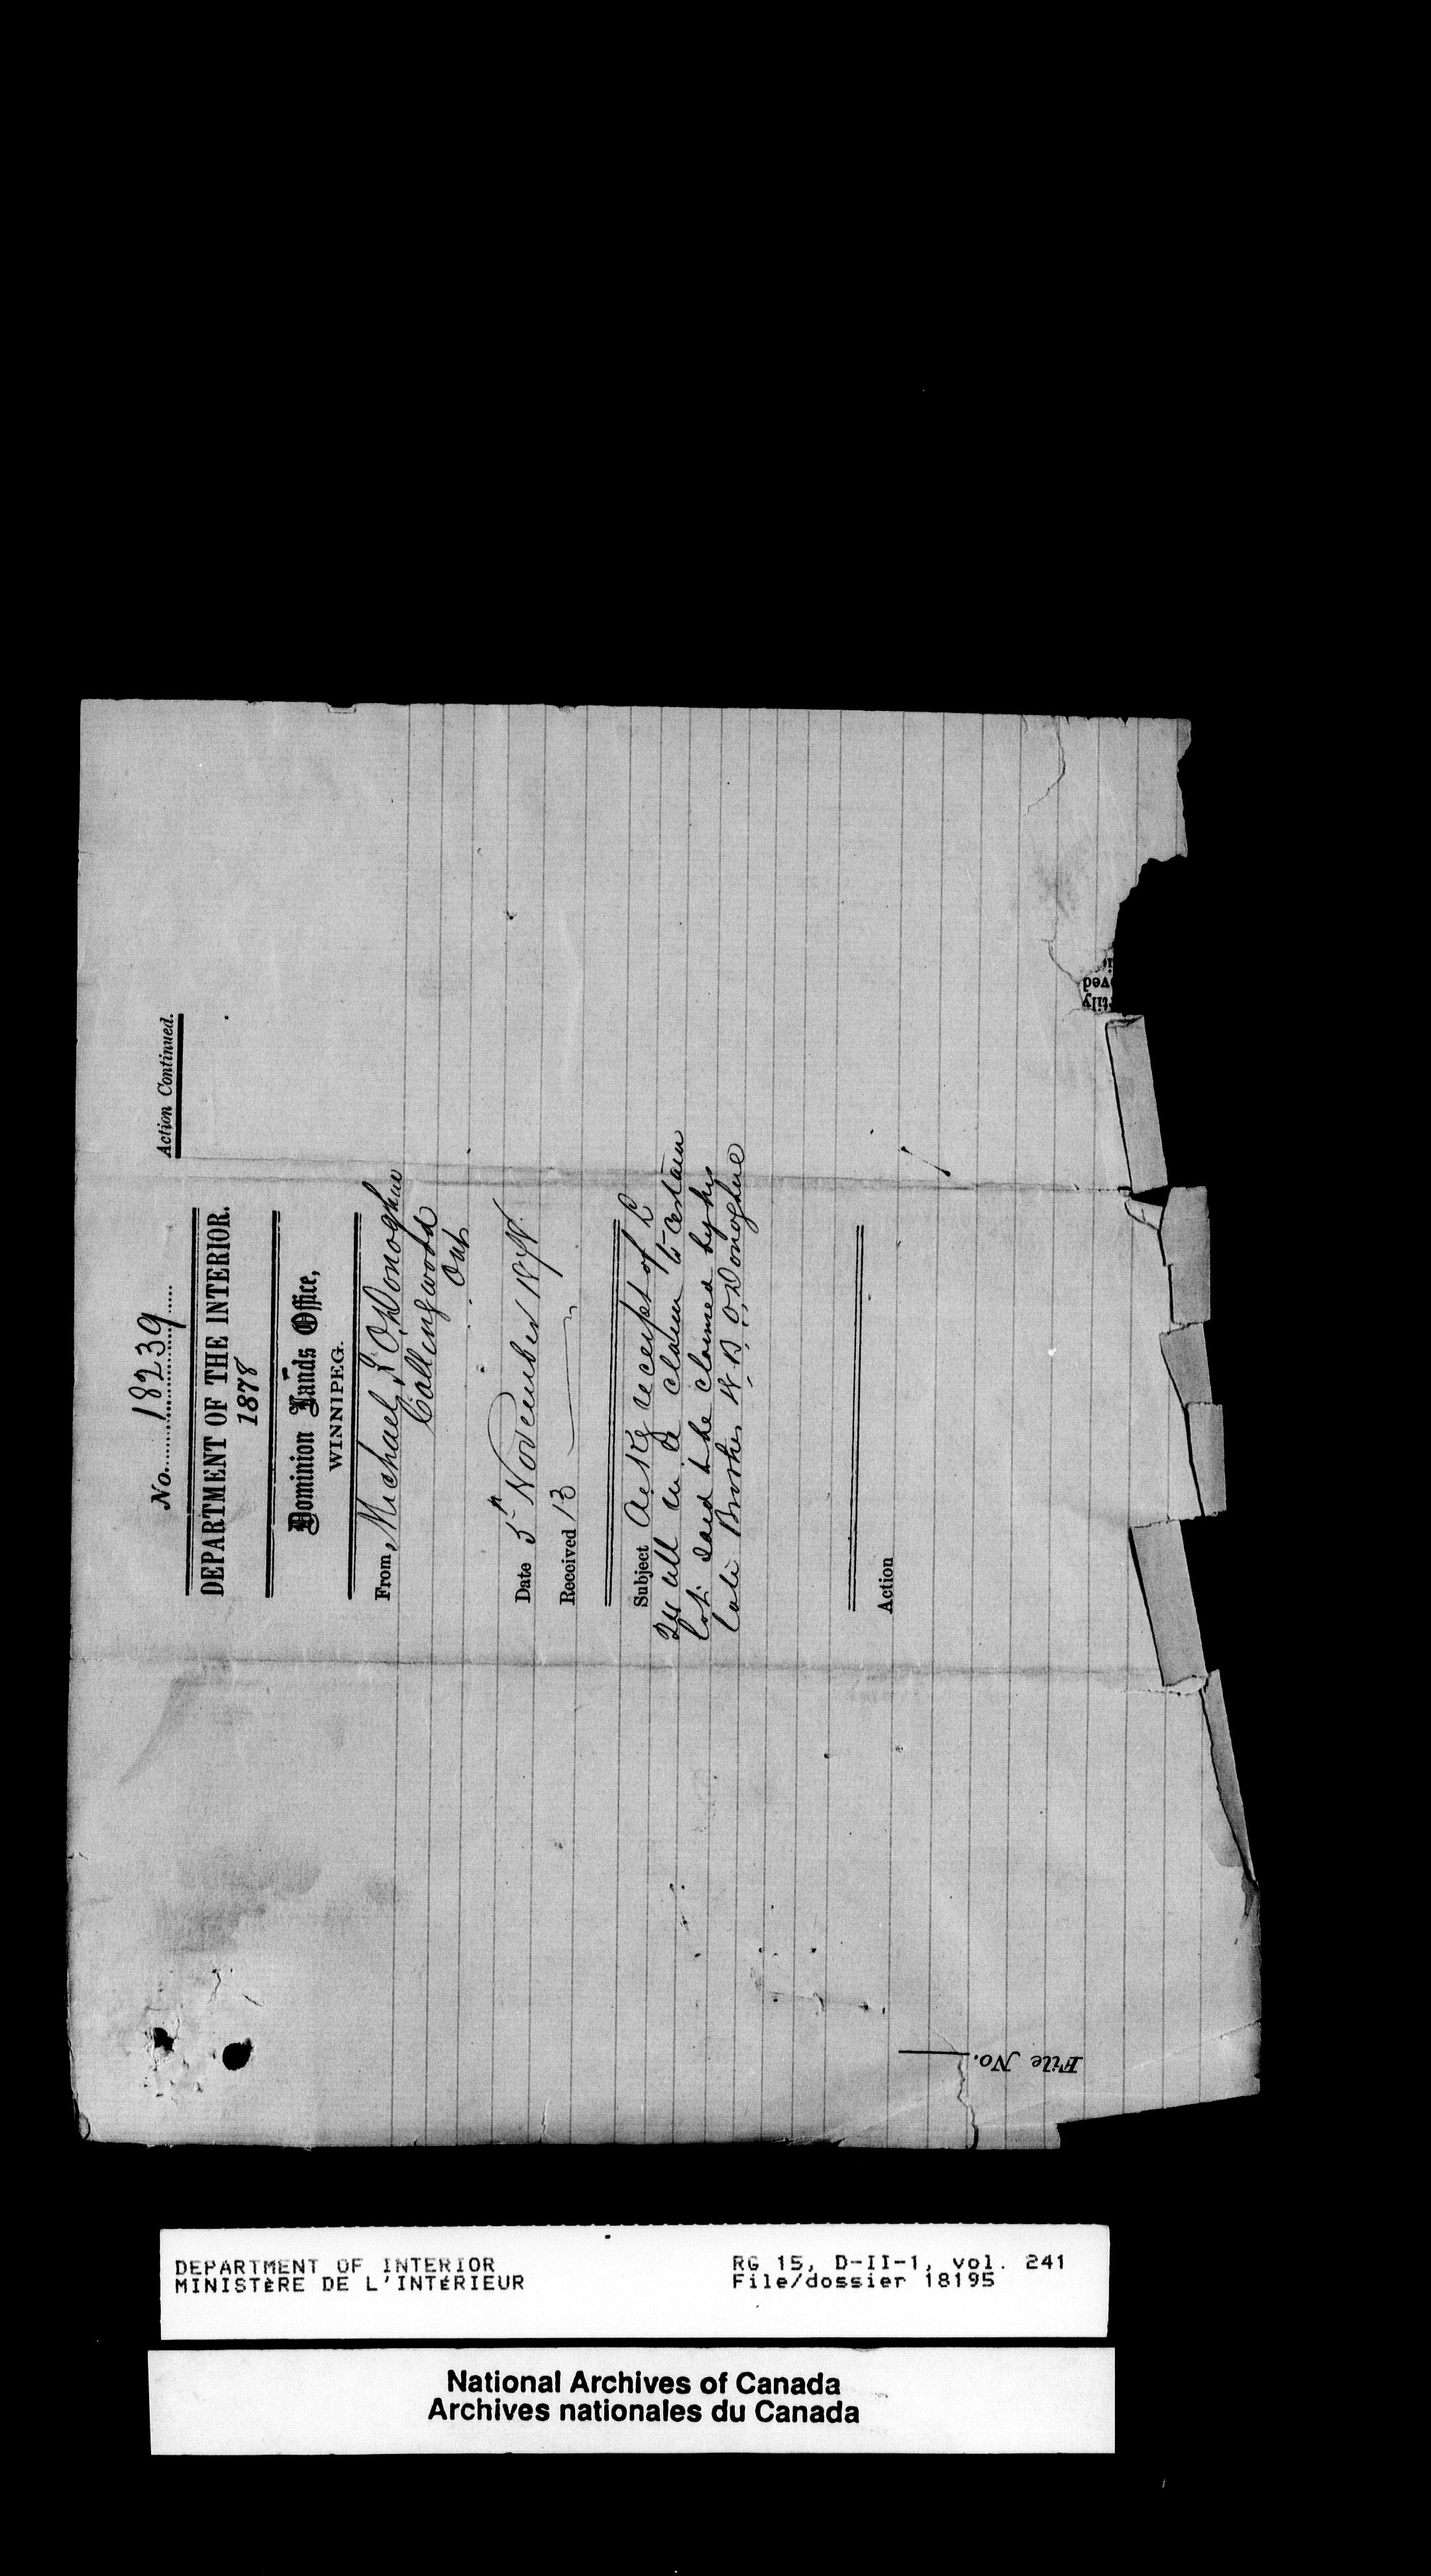 No. 18239
DEPARTMENT OF THE INTERIOR.
1878
Dominion Lands Office,
WINNIPEG.
From Michael O'Donoghue
Collingwood
Ont
Date 5th November 1878.
Received 13
Subject Ack'g receipt of L
claim to certain
lot said to be claimed by his
late Brother W. B. O'Donoghue
Action
Action Continued.
File No.
tily
ved
DEPARTMENT OF INTERIOR
MINISTÈRE DE L'INTÉRIEUR
RG 15, D-II-1, vol. 241
File/dossier 18195
National Archives of Canada
Archives nationales du Canada